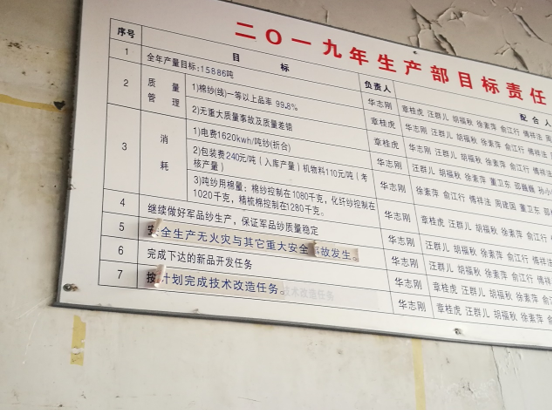 二〇一九年生产部目标责任
序号 目标 负责人 配合人
1 全年产量目标:15886吨 华志刚 章桂虎 汪群儿 胡福秋 徐素萍 俞江行 傅祥法
2 质量管理 1)棉纱(线)一等以上品率 99.8% 章桂虎 华志刚 汪群儿 胡福秋 徐素萍 俞江行
2)无重大质量事故及质量差错 章桂虎 华志刚 汪群儿 胡福秋 徐素萍 俞江行
3 消耗 1)电费1620kwh/吨纱(折合) 华志刚
2)包装费240元/吨(入库产量)机物料110元/吨(考核产量) 华志刚
3)吨纱用棉量:棉纱控制在1080千克,化纤纱控制在1020千克,精梳棉控制在1280千克。 华志刚
4 继续做好军品纱生产,保证军品纱质量稳定 华志刚 章桂虎 汪群儿 胡福秋 徐素萍
5 安全生产无火灾与其它重大安全事故发生。 华志刚 章桂虎 汪群儿 胡福秋 徐素萍
6 完成下达的新品开发任务 华志刚 章桂虎 汪群儿 胡福秋 徐素萍
7 按计划完成技术改造任务。 华志刚 章桂虎 汪群儿 胡福秋 徐素萍